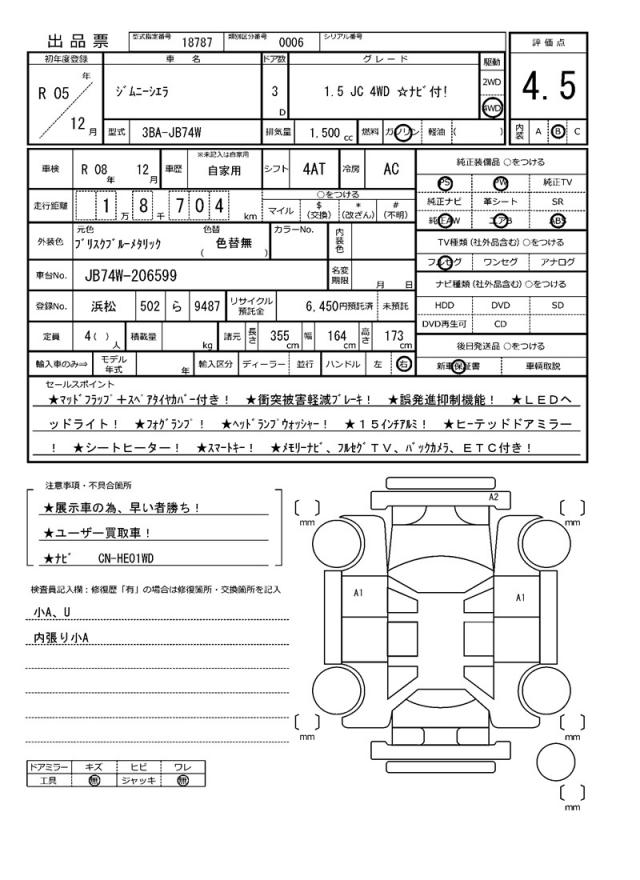 出品票 型式指定番号 18787 類別区分番号 0006 シリアル番号
評価点
4.5
内装 A B C
初年度登録 車名 ドア数 グレード 駆動
R 05 年 12 月
ジムニーシエラ 3 D 1.5 JC 4WD ☆ナビ付! 2WD 4WD
型式 3BA-JB74W 排気量 1.500 cc 燃料 ガソリン 軽油 ( )
車検 R 08 年 12 月 車歴 ※未記入は自家用 自家用 シフト 4AT 冷房 AC
走行距離 1 万 8 千 7 0 4 km
○をつける
マイル $ (交換) * (改ざん) # (不明)
外装色 元色 ブリスクブルーメタリック 色替 ( 色替無 ) カラーNo. 内装色
車台No. JB74W-206599 名変期限 月 日
登録No. 浜松 502 ら 9487 リサイクル預託金 6,450円預託済 未預託
定員 4( ) 人 積載量 kg 諸元 長さ 355 cm 幅 164 cm 高さ 173 cm
輸入車のみ⇒ モデル年式 年 輸入区分 ディーラー 並行 ハンドル 左 右
純正装備品 ○をつける
PS PW 純正TV
純正ナビ 革シート SR
純正AW エアB ABS
TV種類(社外品含む)○をつける
フルセグ ワンセグ アナログ
ナビ種類(社外品含む)○をつける
HDD DVD SD
DVD再生可 CD
後日発送品 ○をつける
新車保証書 車輌取説
セールスポイント
★マッドフラップ+スペアタイヤカバー付き! ★衝突被害軽減ブレーキ! ★誤発進抑制機能! ★LEDヘ
ッドライト! ★フォグランプ! ★ヘッドランプウォッシャー! ★15インチアルミ! ★ヒーテッドドアミラー
! ★シートヒーター! ★スマートキー! ★メモリーナビ、フルセグTV、バックカメラ、ETC付き!
注意事項・不具合箇所
★展示車の為、早い者勝ち!
★ユーザー買取車!
★ナビ CN-HE01WD
検査員記入欄:修復歴「有」の場合は修復箇所・交換箇所を記入
小A、U
内張り小A
ドアミラー キズ ヒビ ワレ
工具 無 ジャッキ 無
A2
A1
A1
mm
mm
mm
mm
mm